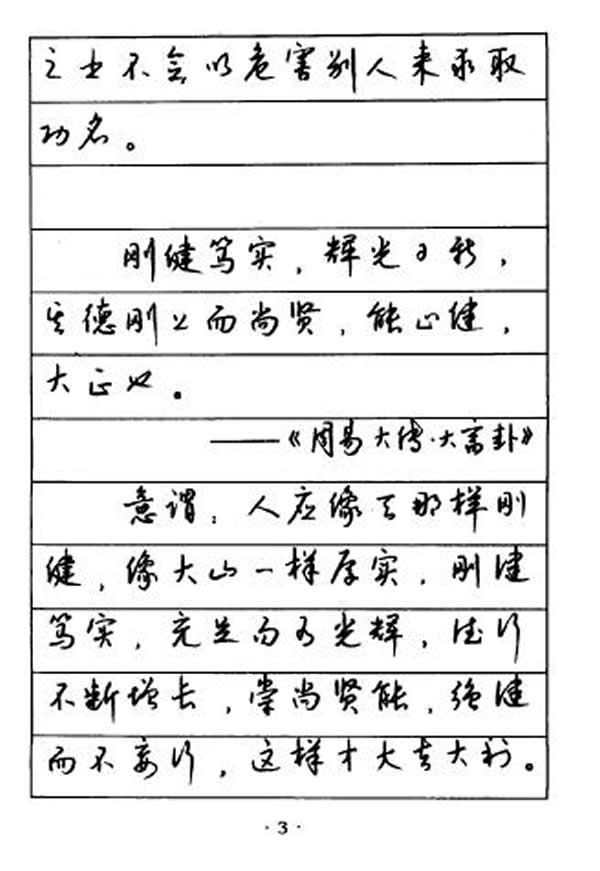 之士不会以危害别人来求取
功名。
刚健笃实，辉光日新，
其德刚上而尚贤，能止健，
大正也。
——《周易大传·大畜卦》
意谓：人应像天那样刚
健，像大山一样厚实，刚健
笃实，充盈而有光辉，德行
不断增长，崇尚贤能，强健
而不妄行，这样才大吉大利。
·3·